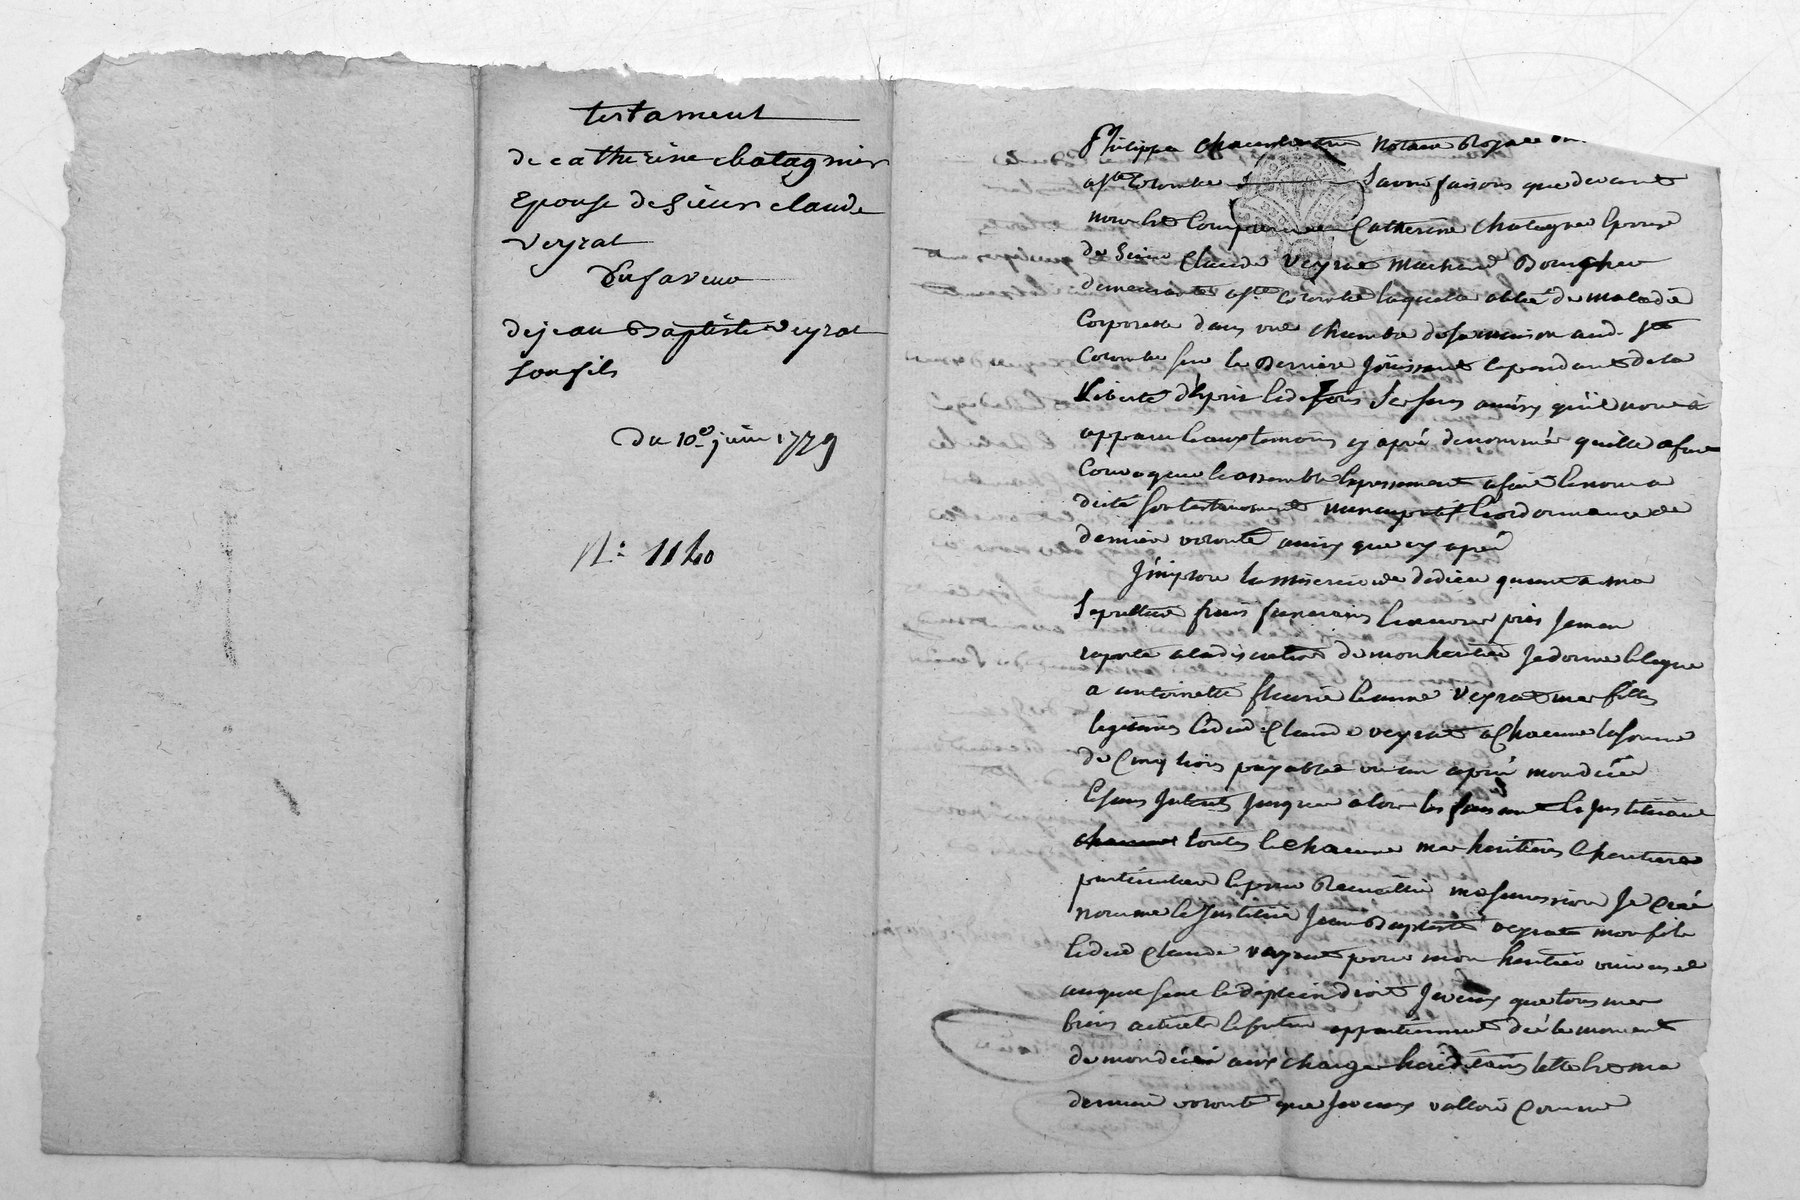 testament
de catherine chatagnier
Epouse de sieur claude
veyrat
En faveur
de jean Baptiste veyrat
son fils
du 10e juin 1779
N.° 1140
Philippe Notaire Royal
a ste Colombe Savoir faisons que devant
nous est Comparue Catherine Chatagnier Epouse
du Sieur Claude Veyrat marchand Boucher
demeurante a ste Colombe laquelle de maladie
Corporelle dans une chambre de sa maison aud. ste
Colombe sur le Derriere Jouissant cependant de la
Liberté d'Esprit Ses sens ainsy qu'il nous a
apparu Et aux temoins cy après denommés qu'elle a fait
Convoquer Et assembler Expressement a fait Et nous a
dicté son testament nuncupatif Et ordonnance de
derniere volonté ainsy que cy après
J'implore la misericorde de dieu quant a ma
Sepulture frais funeraires Et œuvres pies Je m'en
raporte a la discretion de mon heritier Je donne Et legue
a antoinette fleurie Et anne Veyrat mes filles
legitimes Et dud. Claude veyrat a Chacune la somme
de Cinq livres payables un an après mon décès
Et sans Interets Jusques alors les faisant Et Instituant
toutes Et Chacune mes heritieres
particulieres Et pour Recueillir ma succession Je Crée
nomme Et Institue Jean Baptiste veyrat mon fils
Et dud Claude veyrat pour mon heritier universel
seul Et de plein droit Je veux que tous mes
biens actuels Et futurs appartiennent dès le moment
de mon décès aux charges hereditaires telle Est ma
derniere volonté que Je veux valloir Comme